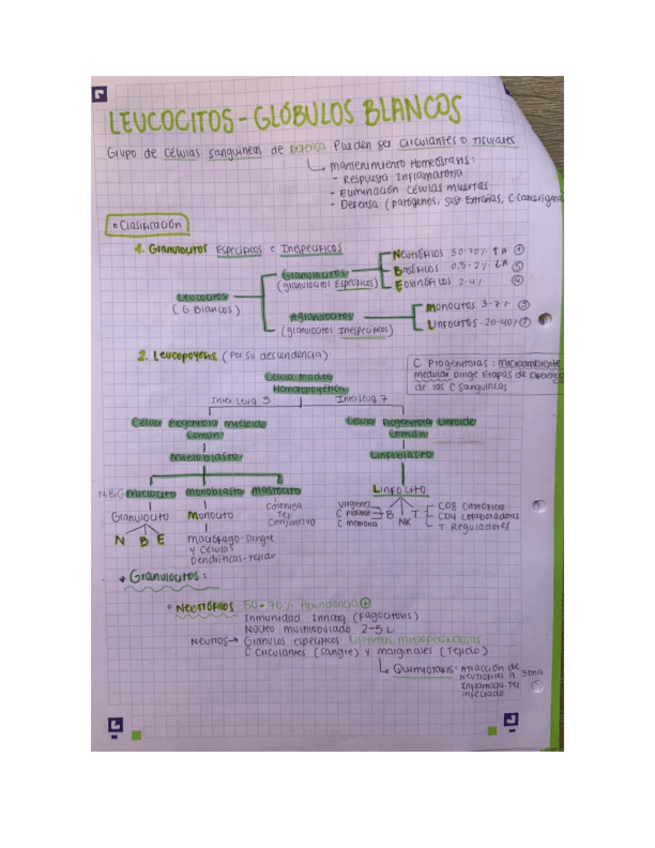 LEUCOCITOS - GLÓBULOS BLANCOS
Grupo de Células sanguíneas de Defensa Pueden ser circulantes o Tisulares
mantenimiento Homeostasis:
- Respuesta Inflamatoria
- Eliminación Células muertas
- Defensa (patógenos, sust Extrañas, C cancerígena
• Clasificación
1. Granulocitos Específicos e Inespecíficos.
Neutrófilos 50-70%
Granulocitos
Basófilos 0,5-2%
(granulocitos Específicos)
Eosinófilos 2-4%
Leucocitos
(G Blancos)
Monocitos 3-7%
Agranulocitos
Linfocitos -20-40%
(granulocitos Inespecíficos)
2. Leucopoyesis (Por su descendencia)
C Progenitoras: microambiente
medular Dirige Etapas de Diferenc
de las C Sanguíneas
Célula madre
Hemotopoyética
Interleuq 3 Interleuq 7
Célula Progenitora mieloide
Común
Célula Progenitora Linfoide
Común
Mieloblasto Linfoblasto
N,B,G mielocito monoblasto mastocito
Linfocito
Granulocito Monocito
N B E
macrófago-sangre
y Células
Dendríticas-Tejido
Tej
Conjuntivo
Virgenes
C memoria
B NK T
CD8 Citotóxicos
CD4 Colaboradores
T Reguladores
* Granulocitos:
• Neutrófilos 50-70% Abundancia +
Inmunidad Innata (Fagocitosis)
Núcleo multilobulado 2-5 L
Neutros→ Gránulos específicos
C Circulantes (sangre) y marginales (Tejido)
Quimiotaxis: Atracción de
neutrófilos a zona
Inflamada Tej
infectado